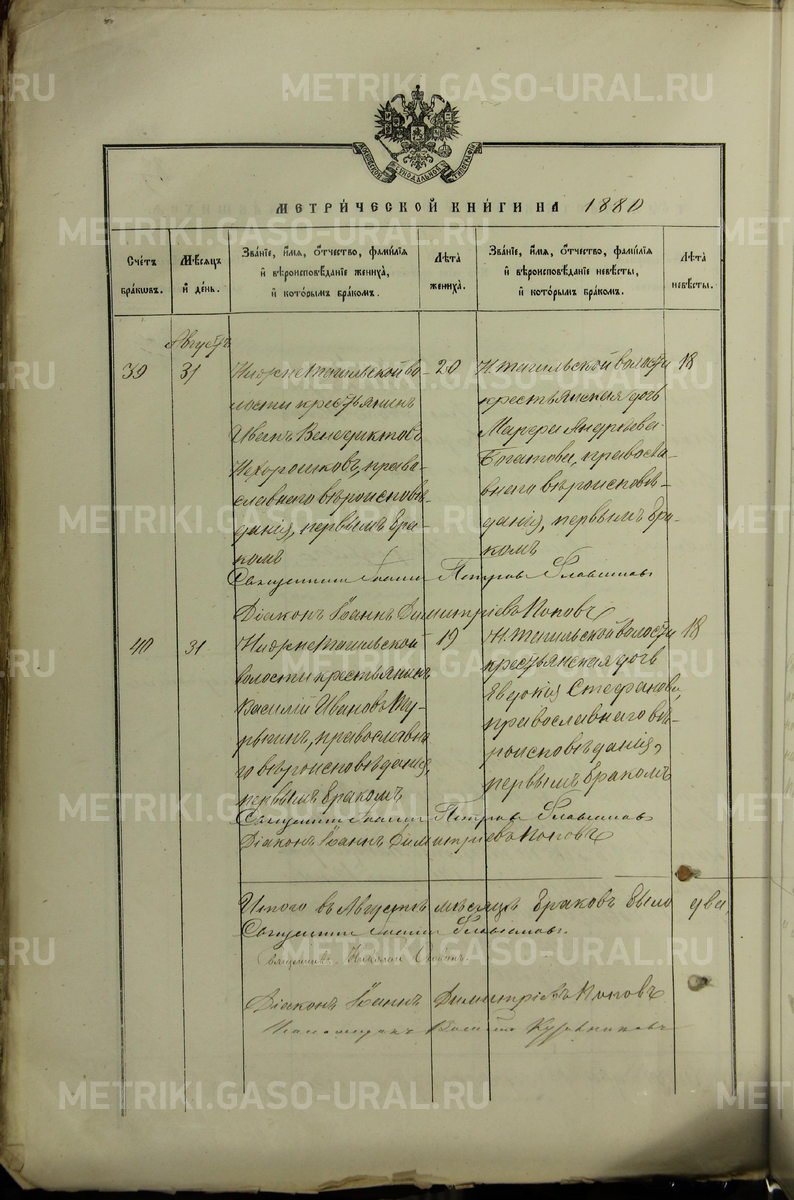 METRIKI.GASO-URAL.RU
МЕТРИ́ЧЕСКОЙ КНИ́ГИ НА 1880
Сче́тъ бра́кѡвъ.
Мѣ́сяцъ и҆ де́нь.
Зва́нїе, и҆́мя, ѻ҆́тчество, фами́лїя и҆ вѣроисповѣ́данїе жениха̀, и҆ кото́рымъ бра́комъ.
Лѣ́та жениха̀.
Зва́нїе, и҆́мя, ѻ҆́тчество, фами́лїя и҆ вѣроисповѣ́данїе невѣ́сты, и҆ кото́рымъ бра́комъ.
Лѣ́та невѣ́сты.
Августъ
39
31
Нижнетагильской во-
лости крестьянинъ
Иванъ Венедиктовъ
Нехорошковъ, право-
славнаго вѣроисповѣ-
данія, первымъ бра-
комъ
20
Н. тагильской волости
крестьянская дочь
Марѳа Андріева
Богатова, правосла-
внаго вѣроисповѣ-
данія, первымъ бра-
комъ
18
Священникъ Іоаннъ Петровъ
Діаконъ Іоаннъ Димитріевъ Поповъ
40
31
Нижнетагильской
волости крестьянинъ
Василій Ивановъ
православна-
го вѣроисповѣданія,
первымъ бракомъ
19
Н. Тагильской волости
крестьянская дочь
Евдокія Стефанова,
православнаго вѣ-
роисповѣданія,
первымъ бракомъ
18
Священникъ Іоаннъ Петровъ
Діаконъ Іоаннъ Димитріевъ Поповъ
Итого въ Августѣ мѣсяцѣ браковъ было два
Священникъ Іоаннъ
Священникъ Николай
Діаконъ Іоаннъ Димитріевъ Поповъ
Псаломщикъ Василій